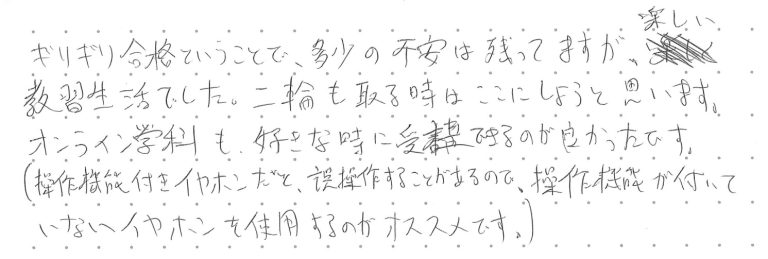 ギリギリ合格ということで、多少の不安は残ってますが、楽しい
教習生活でした。二輪も取る時はここにしようと思います。
オンライン学科も、好きな時に受講できるのが良かったです。
(操作機能付きイヤホンだと、誤操作することがあるので、操作機能が付いて
いないイヤホンを使用するのがオススメです。)